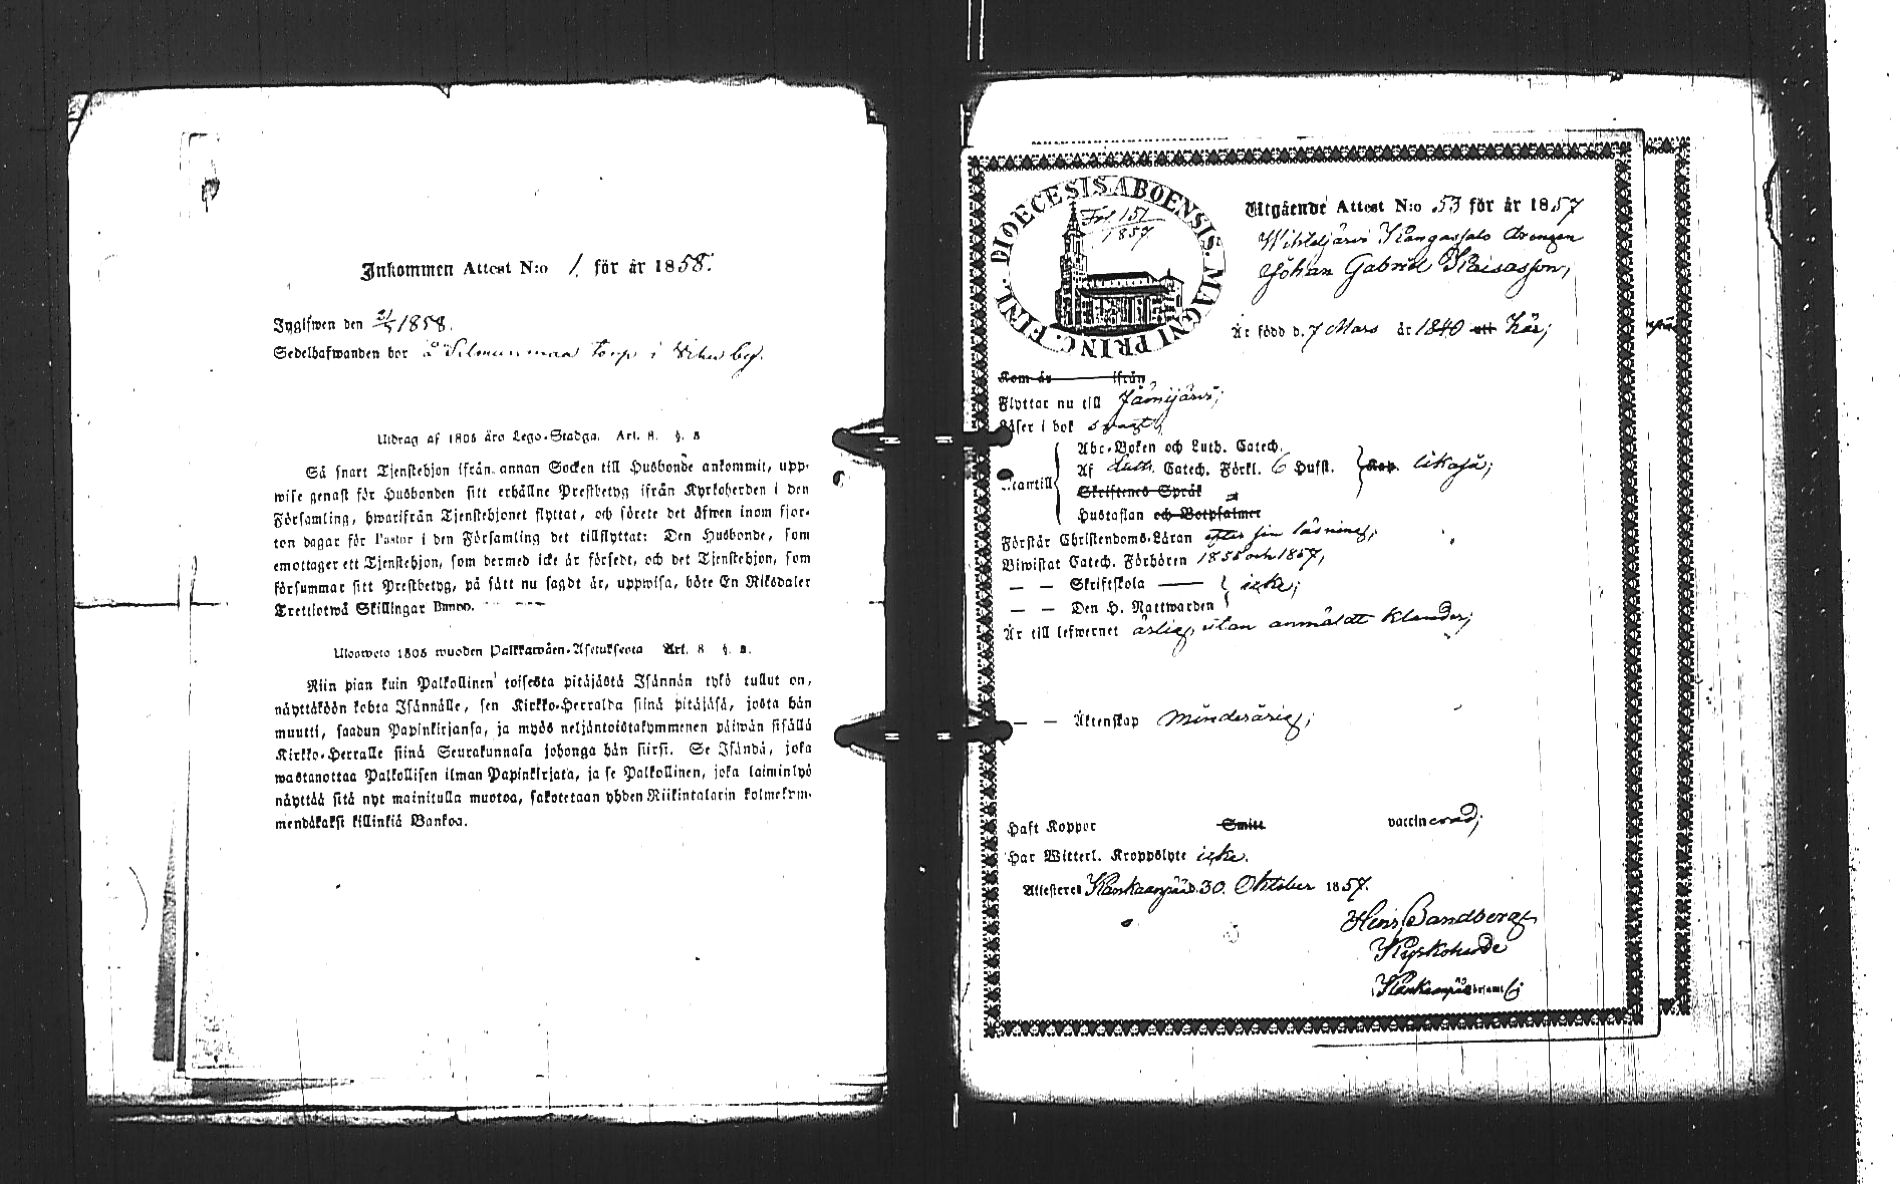 Inkommen Attest N:o 1. för år 1858.
den 21/5 1858.
Sedelhafwanden bor å torp i by.
Utdrag af 1805 års Lego-Stadga. Art. 8. §. 8
Så snart Tjenstehjon ifrån annan Socken till Husbonde ankommit, upp-
wise genast för Husbonden sitt erhållne Prestbetyg ifrån Kyrkoherden i den
Församling, hwarifrån Tjenstehjonet flyttat, och förete det äfwen inom fjor-
ton dagar för Pastor i den Församling det tillflyttat: Den Husbonde, som
emottager ett Tjenstehjon, som dermed icke är försedt, och det Tjenstehjon, som
försummar sitt Prestbetyg, på sätt nu sagdt är, uppwisa, böte En Riksdaler
Trettiotwå Skillingar Banco.
Ulosweto 1805 wuoden Palkkawäen-Asetuksesta Art. 8 §. 8.
Niin pian kuin Palkollinen toisesta pitäjästä Isännän tykö tullut on,
näyttäköön kohta Isännälle, sen Kirkko-Herralda siinä pitäjäsä, josta hän
muutti, saadun Papinkirjansa, ja myös neljäntoistakymmenen päiwän sisällä
Kirkko-Herralle siinä Seurakunnasa johonga hän siirsi. Se Isändä, joka
wastanottaa Palkollisen ilman Papinkirjata, ja se Palkollinen, joka laiminlyö
näyttää sitä nyt mainitulla muotoa, sakotetaan yhden Riikintalarin kolmekym-
mendäkaksi killinkiä Bankoa.
FINL. DIOECESIS ABOENSIS. MAGNI PRINC.
Fol 151
1857
Utgående Attest N:o 53 för år 1857
Wihteljärvi Kangassalo drengen
Johan Gabriel Kaisasson,
Är född d. 7 Mars år 1840 uti här;
Kom år ifrån
Flyttar nu till Jämijärvi;
Läser i bok svagt,
Abc-Boken och Luth. Catech.
Utantill Af Luth. Catech. Förkl. 6 Hufst. Kap. likaså;
Skriftenes Språk
Hustaflan och Botpsalmer
Förstår Christendoms-Läran efter sin läsning;
Biwistat Catech. Förhören 1855 och 1857,
— — Skriftskola — icke;
— — Den H. Nattwarden
Är till lefwernet ärlig, utan anmäldt klander;
— — Äktenskap minderårig;
Haft Koppor Smitt vaccinerad;
Har Witterl. Kroppslyte icke.
Attesteres Kankaanpää d. 30. Oktober 1857.
Henr. Sandberg
Kyrkoherde
Kankaanpää församl.